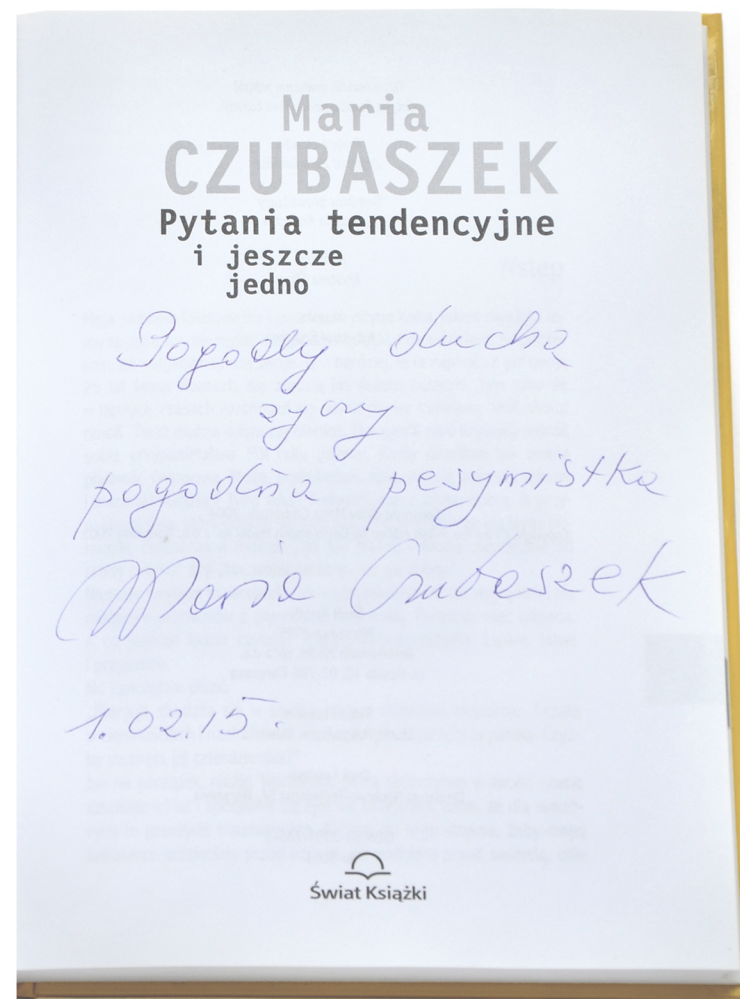 Maria
CZUBASZEK
Pytania tendencyjne
i jeszcze
jedno
Pogody ducha
życzy
pogodna pesymistka
Maria Czubaszek
1.02.15.
Świat Książki